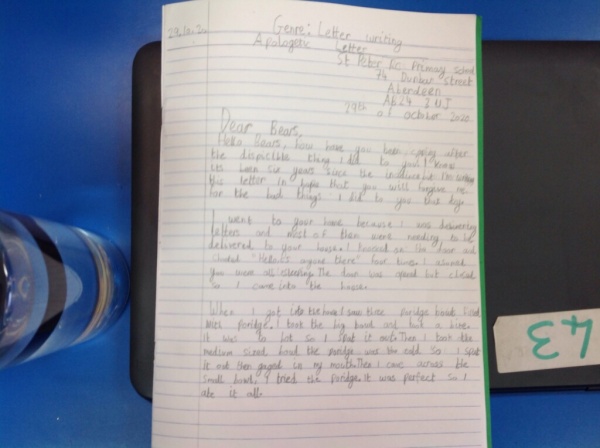 29.10.20
Genre: Letter writing
Apologetic Letter
St Peter RC Primary School
74 Dunbar Street
Aberdeen
AB24 3UJ
29th of october 2020
Dear Bears,
Hello Bears, how have you been going after
the despictble thing I did to you? I know
its been six years since the I'm writing
this letter in hopes that you will forgive me
for the bad things I did to you that day.
I went to your house because I was delivering
letters and most of them were needing to be
delivered to your house. I knocked on the door and
shouted "Hello is anyone there" four times. I assumed
you were all sleeping. The door was opend but closed
so I came into the house.
When I got into the house I saw three poridge bowls filled
with poridge. I took the big bowl and took a bite.
It was to hot so I spat it out. Then I took the
medium sized bowl the poridge was too cold so I spat
it out then gaged in my mouth. Then I came across the
small bowl. I tried the poridge. It was perfect so I
ate it all.
43